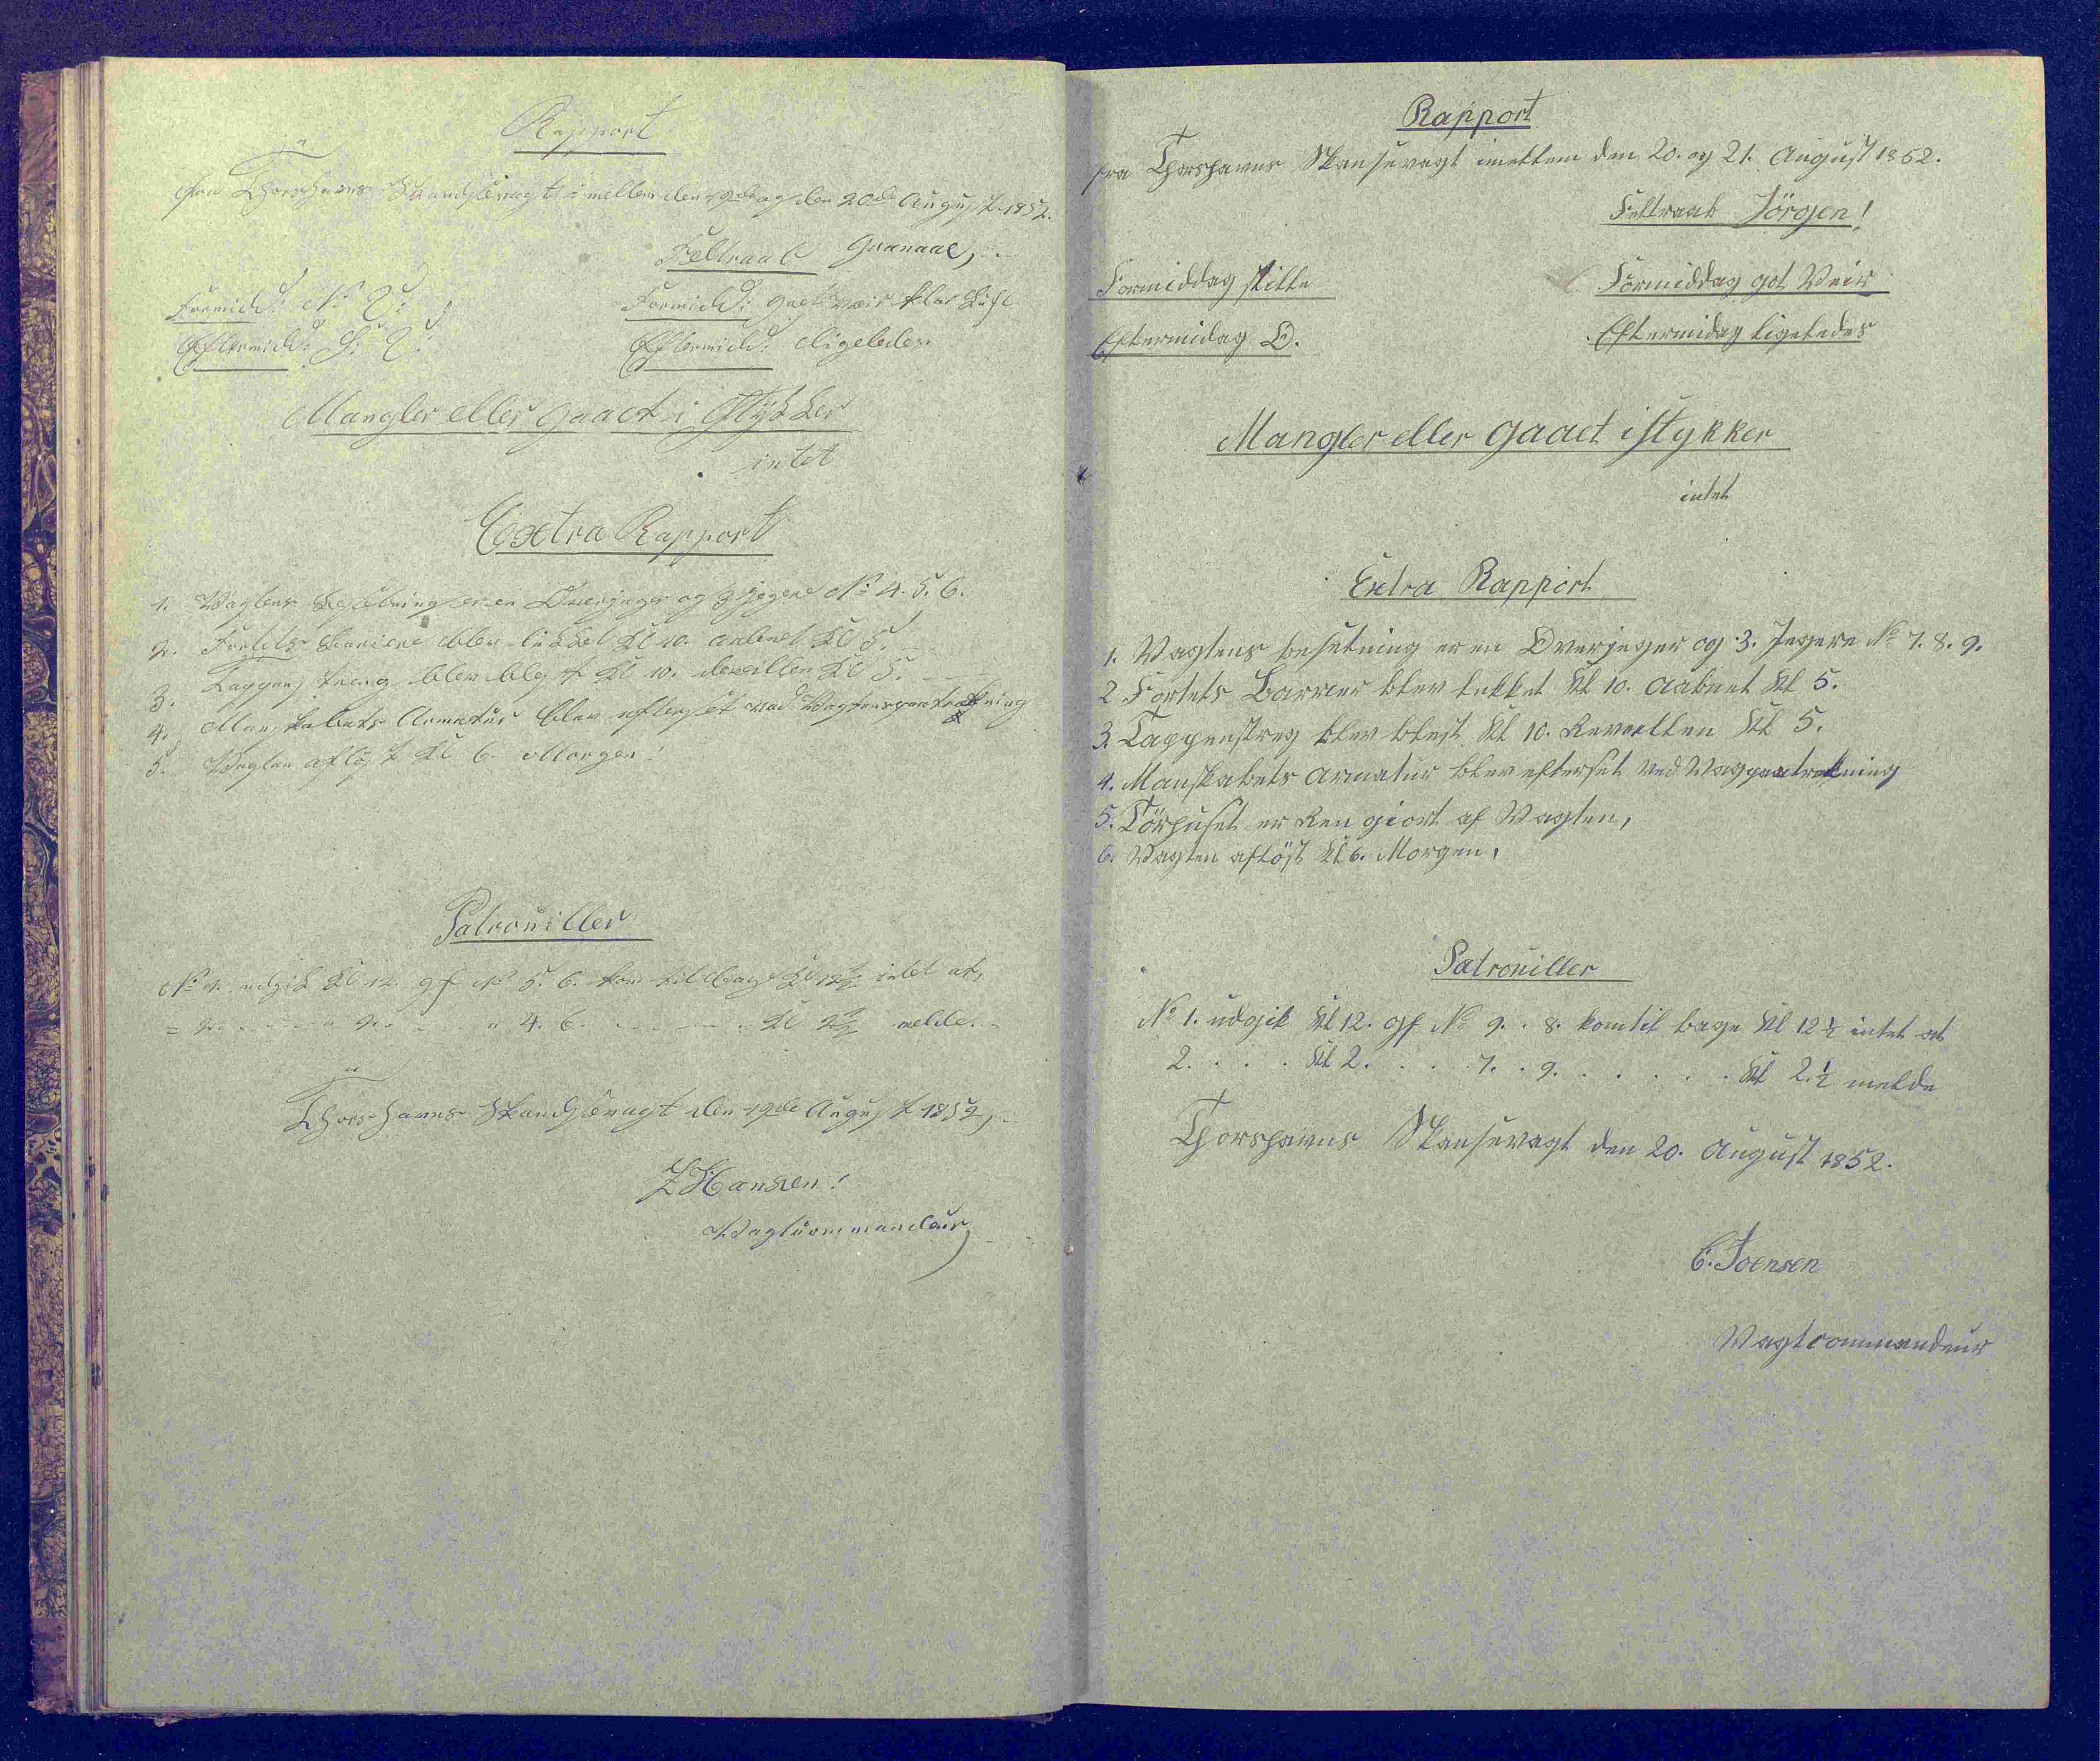 Rapport
fra Thorshavns Skandsevagt imellem den 19de og den 20de August 1852.
Feltraab Granaae,
Formidd: N: O:
Formidd: godt veir klar Luft
Eftermid: S: O:
Eftermid: ligeledes
Mangler eller gaaet i Stykker
intet
Extra Rapport
1. Vagtens Besætning er en Overjæger og 3 jegere No 4. 5. 6.
2. Fortets Bariere blev lukket Kl 10. aabnet Kl 5.
3. Tappenstreg blev blest Kl 10. Revellien Kl 5.
4. Manskabets Armatur blev efterset ved Vagtenspaatrækning
5. Vagten afløst Kl 6. Morgen!
Patrouiller
No 1. udgik Kl 12 gf No 5. 6. kom tilbage Kl 12½ intet at,
= 2. - - - " 2. - - " 4. 6. - - - - Kl 2½ melde.
Thorshavns Skandsevagt den 19de August 1852,
Z Hansen!
Vagtcommandeur
Rapport
fra Thorshavns Skansevagt imellem den 20. og 21. August 1852.
Feltraab Jörgen!
Formiddag stille
Formiddag got Veir
Eftermidag O.
Eftermidag ligeledes
Mangler eller gaaet istykker
intet
Extra Rapport
1. Vagtens besetning er en Overjeger og 3. Jegere No 7. 8. 9.
2 Fortets Barrier blev lukket Kl 10. Aabnet Kl 5.
3. Tappenstreg blev blest Kl 10. Revellien Kl 5.
4. Manskabets Armatur blev efterset ved Vagpaatrekning
5. Törhuset er Ren giort af Vagten,
6. Vagten aflöst Kl 6. Morgen,
Patrouiller
No 1. udgik Kl 12. gf No 9. . 8. komtil bage Kl 12½ intet at
2. . . . Kl 2. . . . 7. . 9. . . . . . Kl 2.½ melde
Thorshavns Skansevagt den 20. August 1852.
C. Joensen
Vagtcommandeur